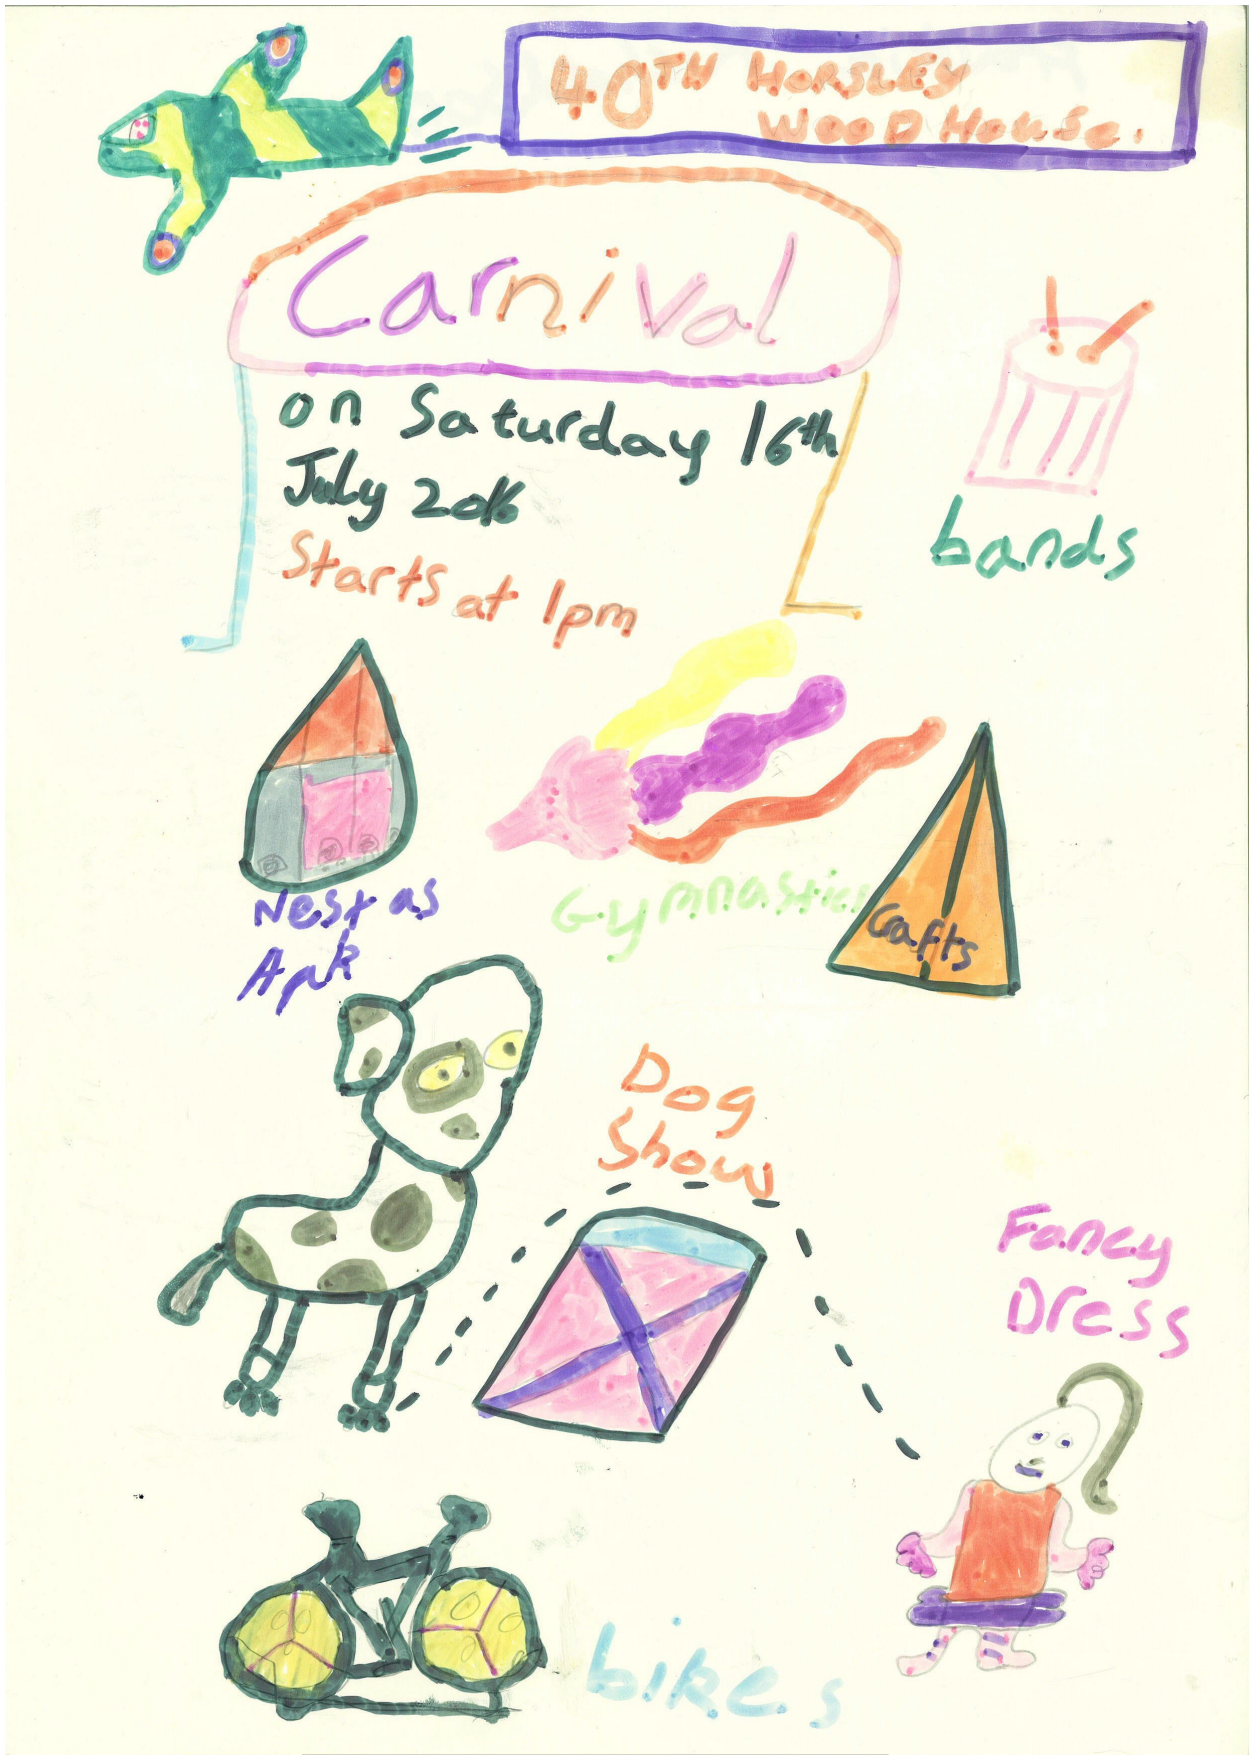 40TH HORSLEY
WOODHOUSE.
Carnival
on Saturday 16th
July 2016
Starts at 1pm
bands
Nest as
Ark
Gymnastics
Crafts
Dog
Show
Fancy
Dress
bikes